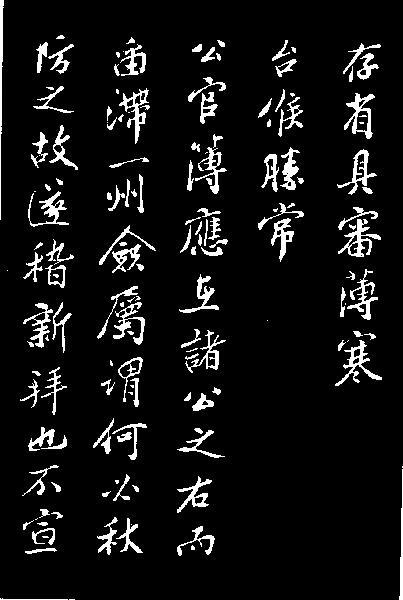 存省具審薄寒
台候勝常
公官簿應在諸公之右而
留滯一州僉屬謂何必秋
防之故遂稽新拜也不宣